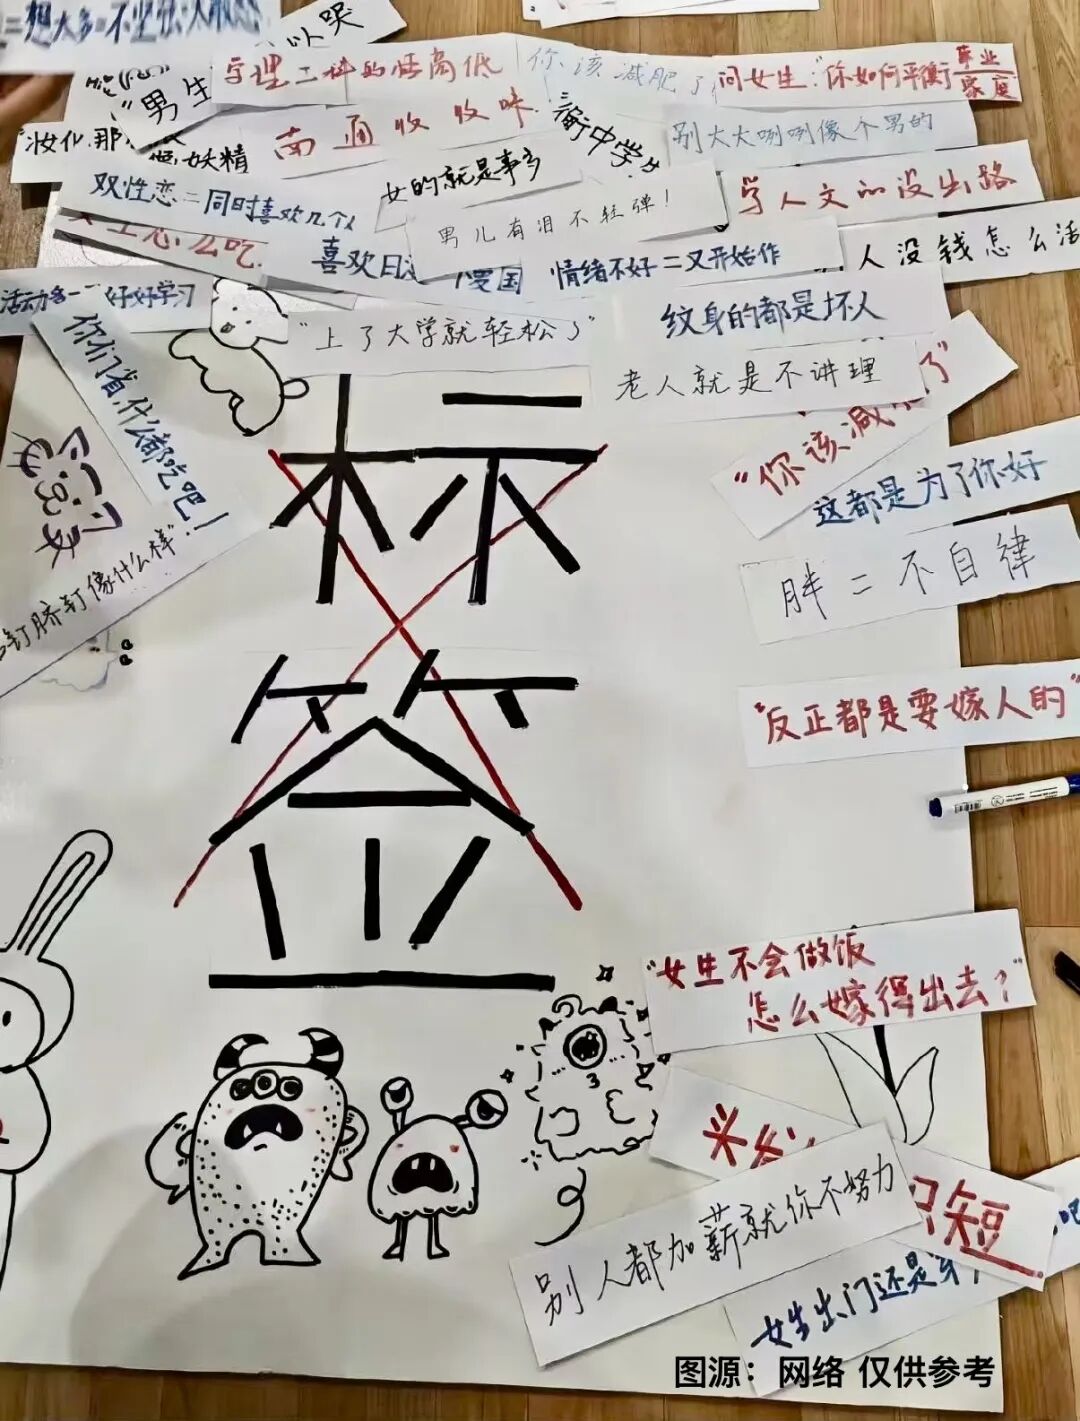 以哭
"男生
学理工科的
你该减肥了
问女生："你如何平衡事业
家庭
南通
衡中学生
别大大咧咧像个男的
"妆化那
妖精
女的就是事多
双性恋=同时喜欢几个人
男儿有泪不轻弹！
学人文的没出路
喜欢日
国
情绪不好=又开始作
人没钱怎么活
活动多
好好学习
"上了大学就轻松了"
纹身的都是坏人
老人就是不讲理
你们省，什么都吃吧！
"你该减
了"
这都是为了你好
标签
胖=不自律
脐钉像什么样"！
"反正都是要嫁人的"
"女生不会做饭
怎么嫁得出去？"
头发
识短
吧
别人都加薪就你不努力
女生出门还是
图源：网络 仅供参考